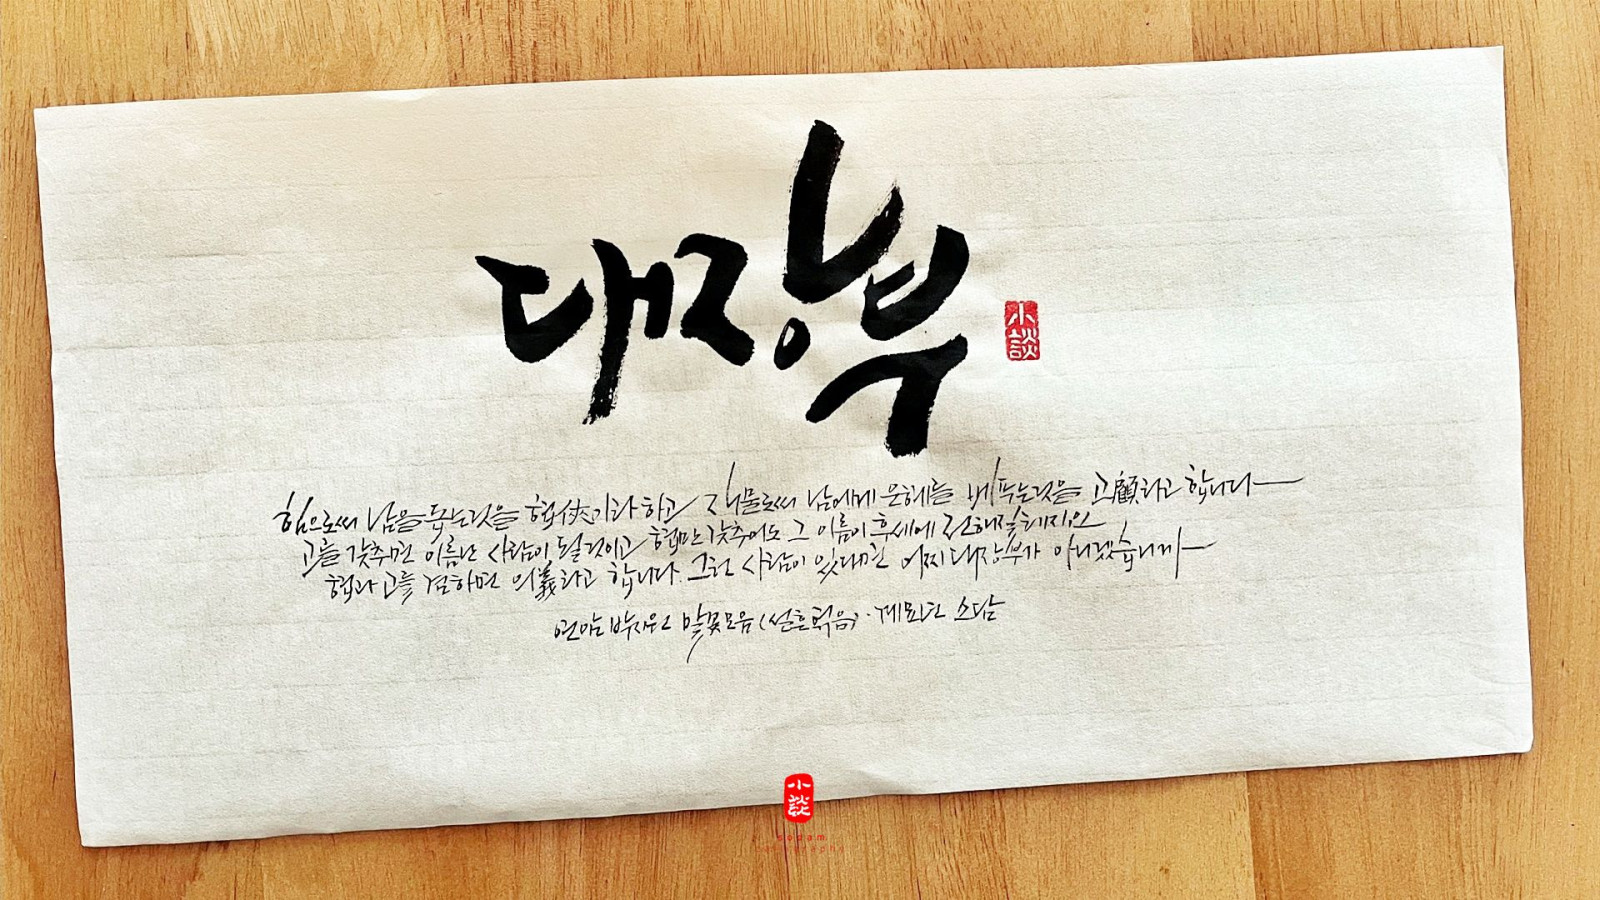 대장부
小談
힘으로써 남을 돕는것을 협俠기라 하고 재물로써 남에게 은혜를 베푸는것을 고顧라고 합니다
고를 갖추면 이름난 사람이 될것이고 협만 갖추어도 그 이름이 후세에 전해질테지요
협과 고를 겸하면 의義라고 합니다. 그런 사람이 있다면 어찌 대장부가 아니겠습니까
연암 박지원 말꽃모음(설흔 엮음)·제모란 소담
小談
sodam